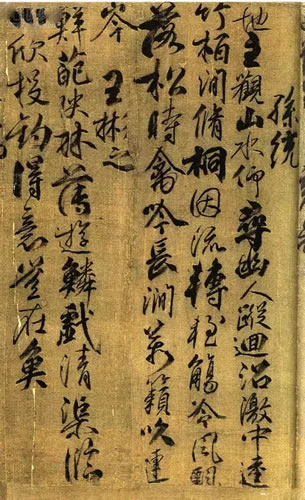 孫統
地主觀山水仰尋幽人蹤迴沼激中逵
竹柏澗脩桐因流轉輕觴冷風飄
落松時禽吟長澗萬籟吹連
岑 王彬之
鮮葩映林薄遊鱗戲清渠臨
欣投釣得意豈在魚